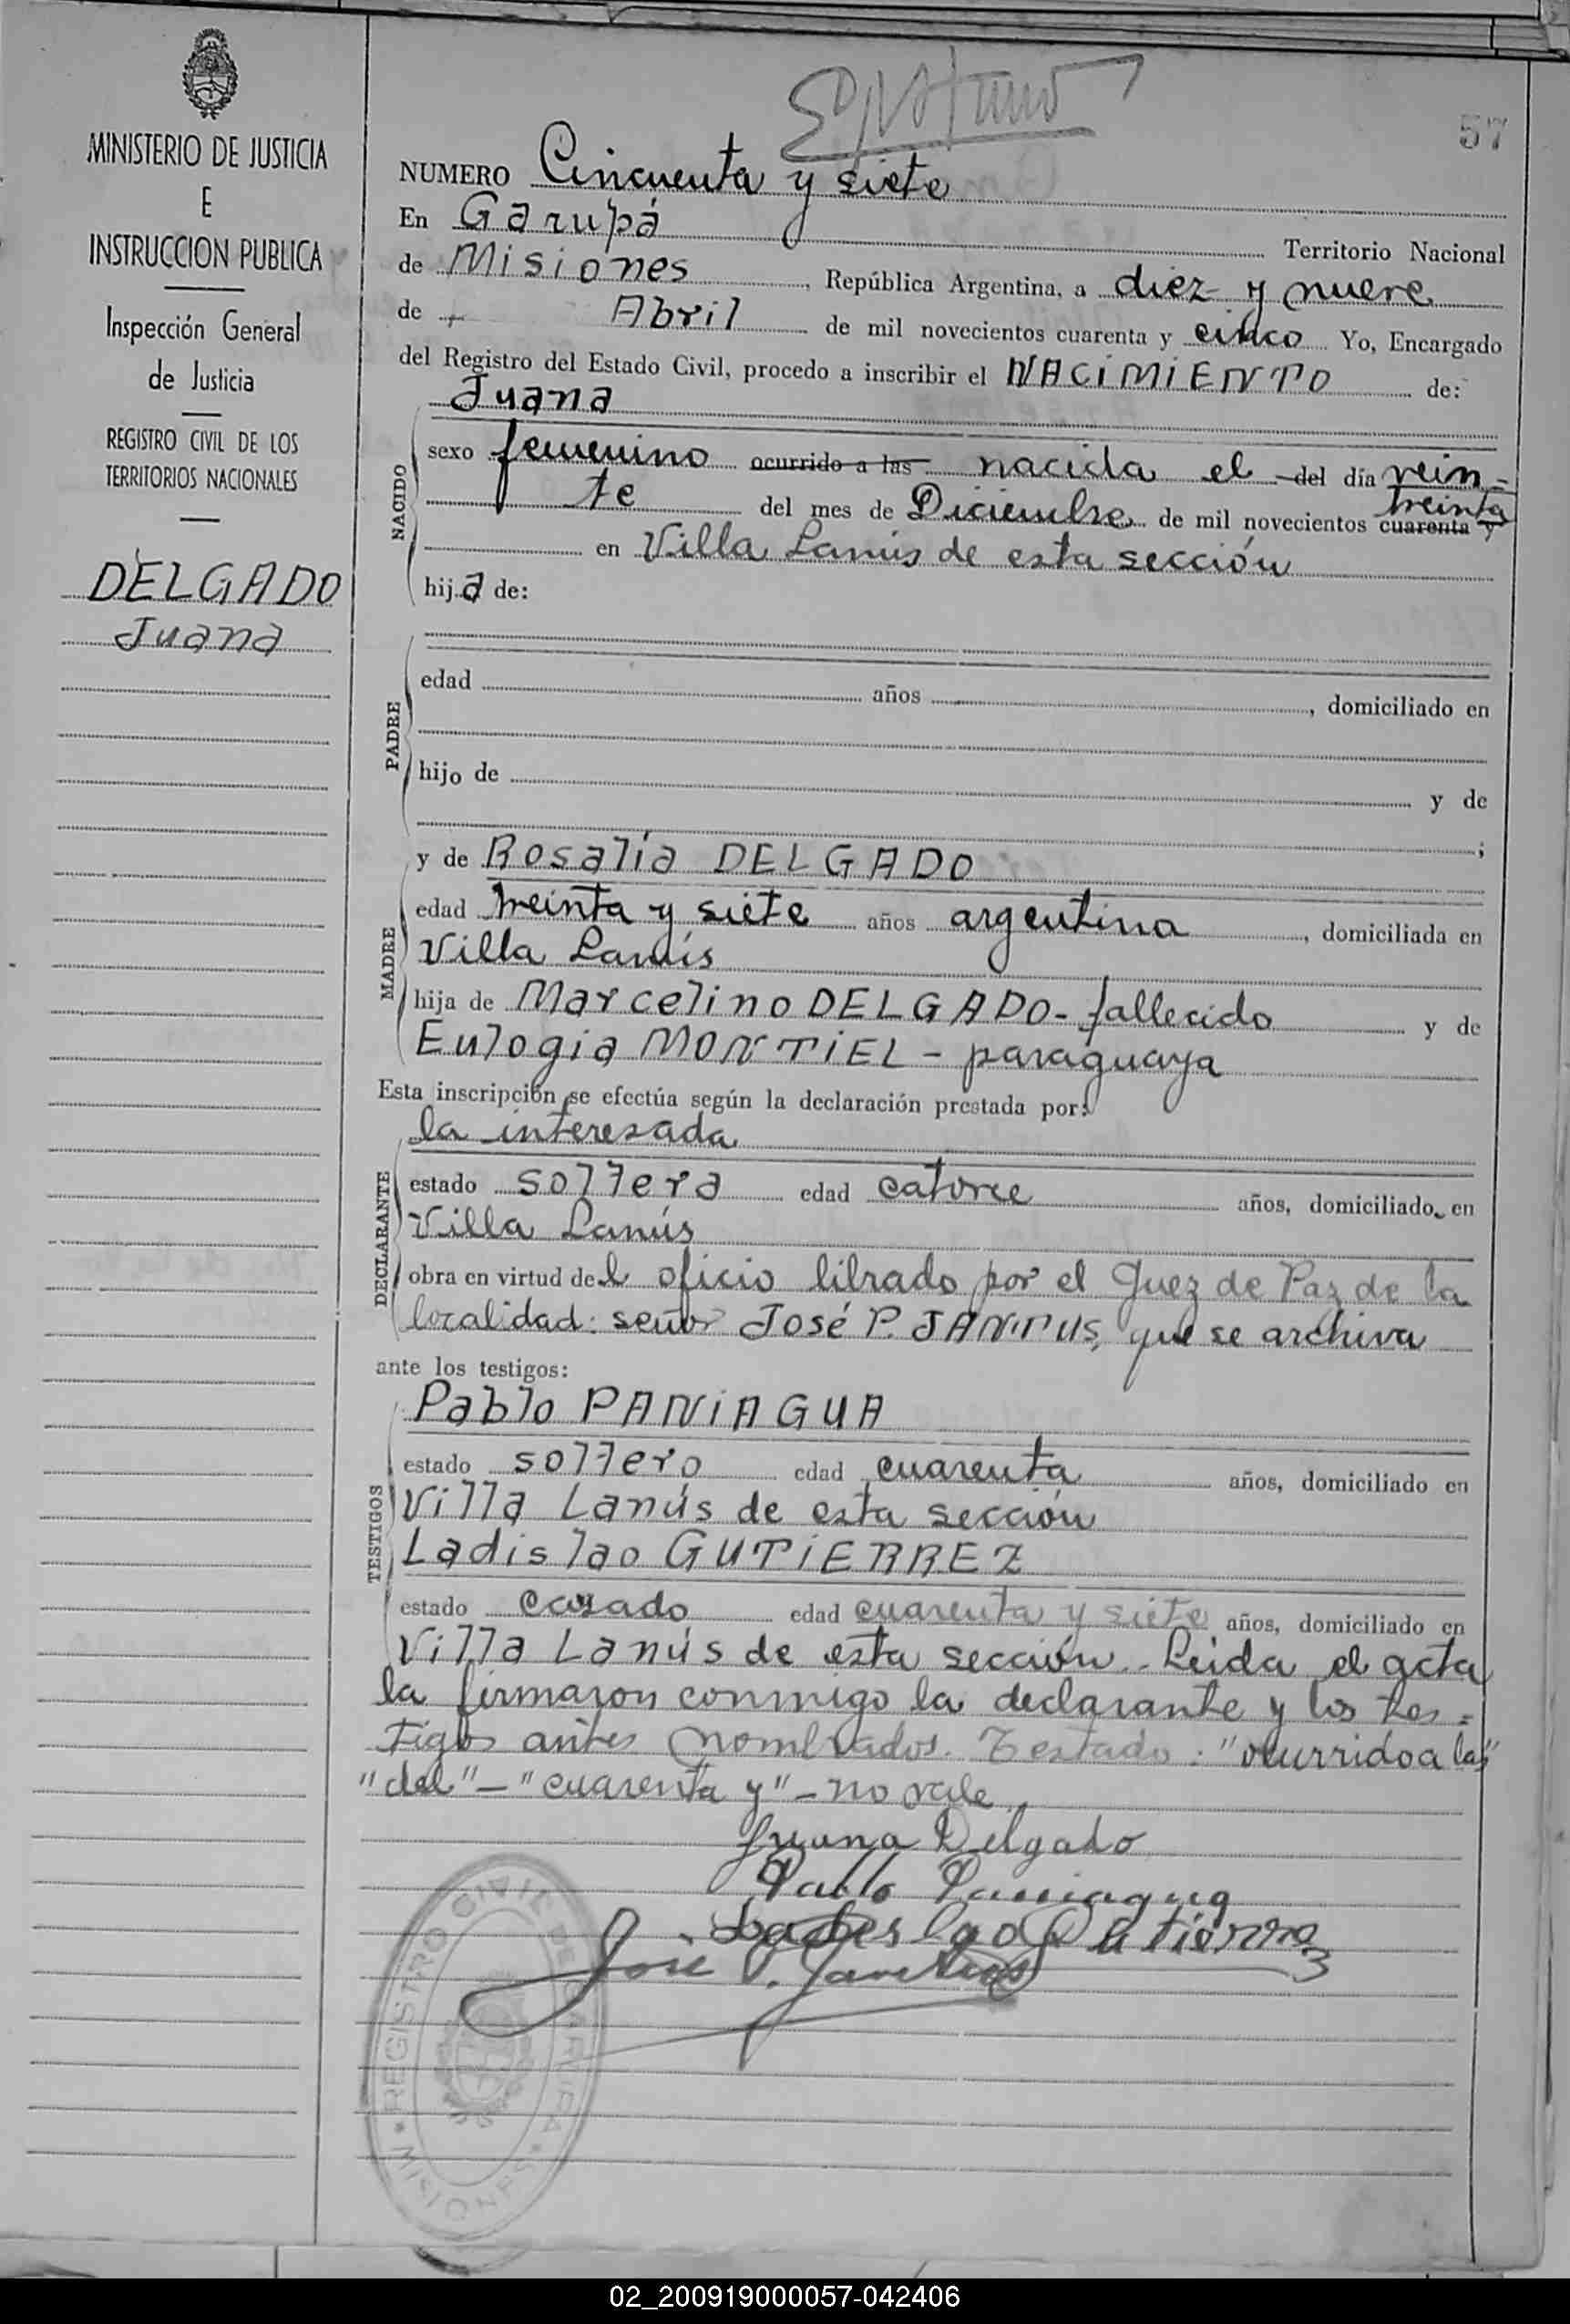 MINISTERIO DE JUSTICIA
E
INSTRUCCION PUBLICA
Inspección General
de Justicia
REGISTRO CIVIL DE LOS
TERRITORIOS NACIONALES
DELGADO
Juana
57
NUMERO Cincuenta y siete
En Garupá Territorio Nacional
de Misiones, República Argentina, a diez y nueve
de Abril de mil novecientos cuarenta y cinco Yo, Encargado
del Registro del Estado Civil, procedo a inscribir el NACIMIENTO de:
Juana
NACIDO
sexo femenino ocurrido a las nacida el del día vein-
te del mes de Diciembre de mil novecientos cuarenta y treinta
en Villa Lanús de esta sección
hija de:
PADRE
edad años , domiciliado en
hijo de y de
;
MADRE
y de Rosalía DELGADO
edad treinta y siete años argentina, domiciliada en
Villa Lanús
hija de Marcelino DELGADO - fallecido y de
Eulogia MONTIEL - paraguaya
Esta inscripción se efectúa según la declaración prestada por:
la interesada
DECLARANTE
estado soltera edad catorce años, domiciliado en
Villa Lanús
obra en virtud del oficio librado por el Juez de Paz de la
localidad: señor José P. JANTUS, que se archiva
ante los testigos:
TESTIGOS
Pablo PANIAGUA
estado soltero edad cuarenta años, domiciliado en
Villa Lanús de esta sección
Ladislao GUTIERREZ
estado casado edad cuarenta y siete años, domiciliado en
Villa Lanús de esta sección.- Leída el acta
la firmaron conmigo la declarante y los tes=
tigos antes nombrados. Testado: "ocurrido a las"
"del" - "cuarenta y" - no vale
Juana Delgado
Pablo Paniagua
Ladislao Gutierrez
José P. Jantus
REGISTRO CIVIL DE GARUPA
MISIONES
02_200919000057-042406